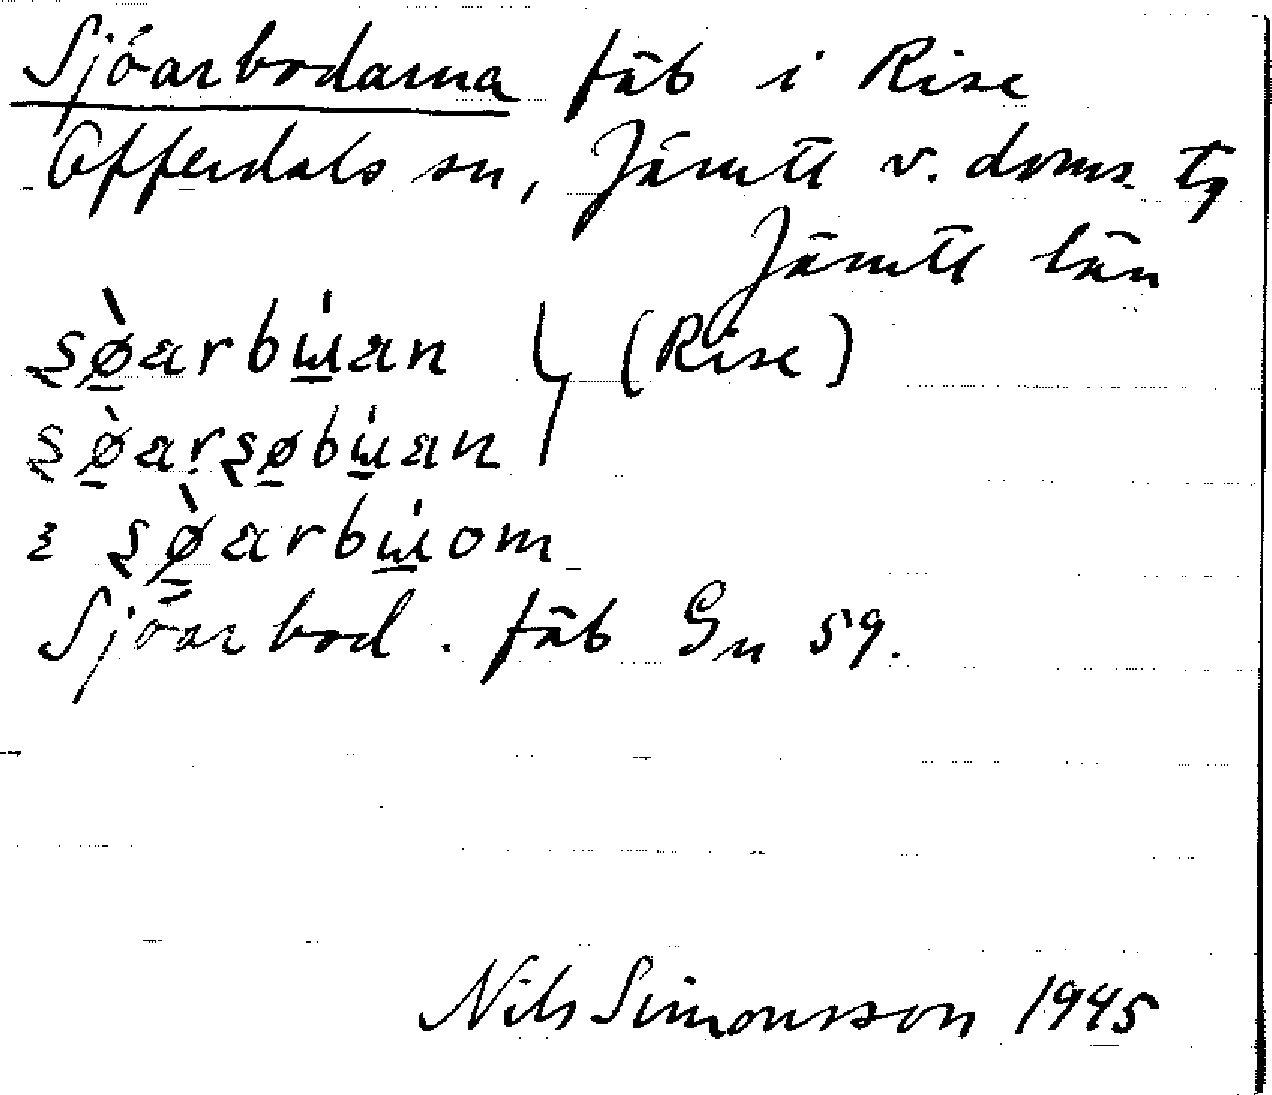 Sjöarbodarna fäb i Rise
Offerdals sn, Jämtl v. doms. tg
Jämtl län
(Rise)
Sjöarbod. fäb Gn 59.
Nils Simonsson 1945